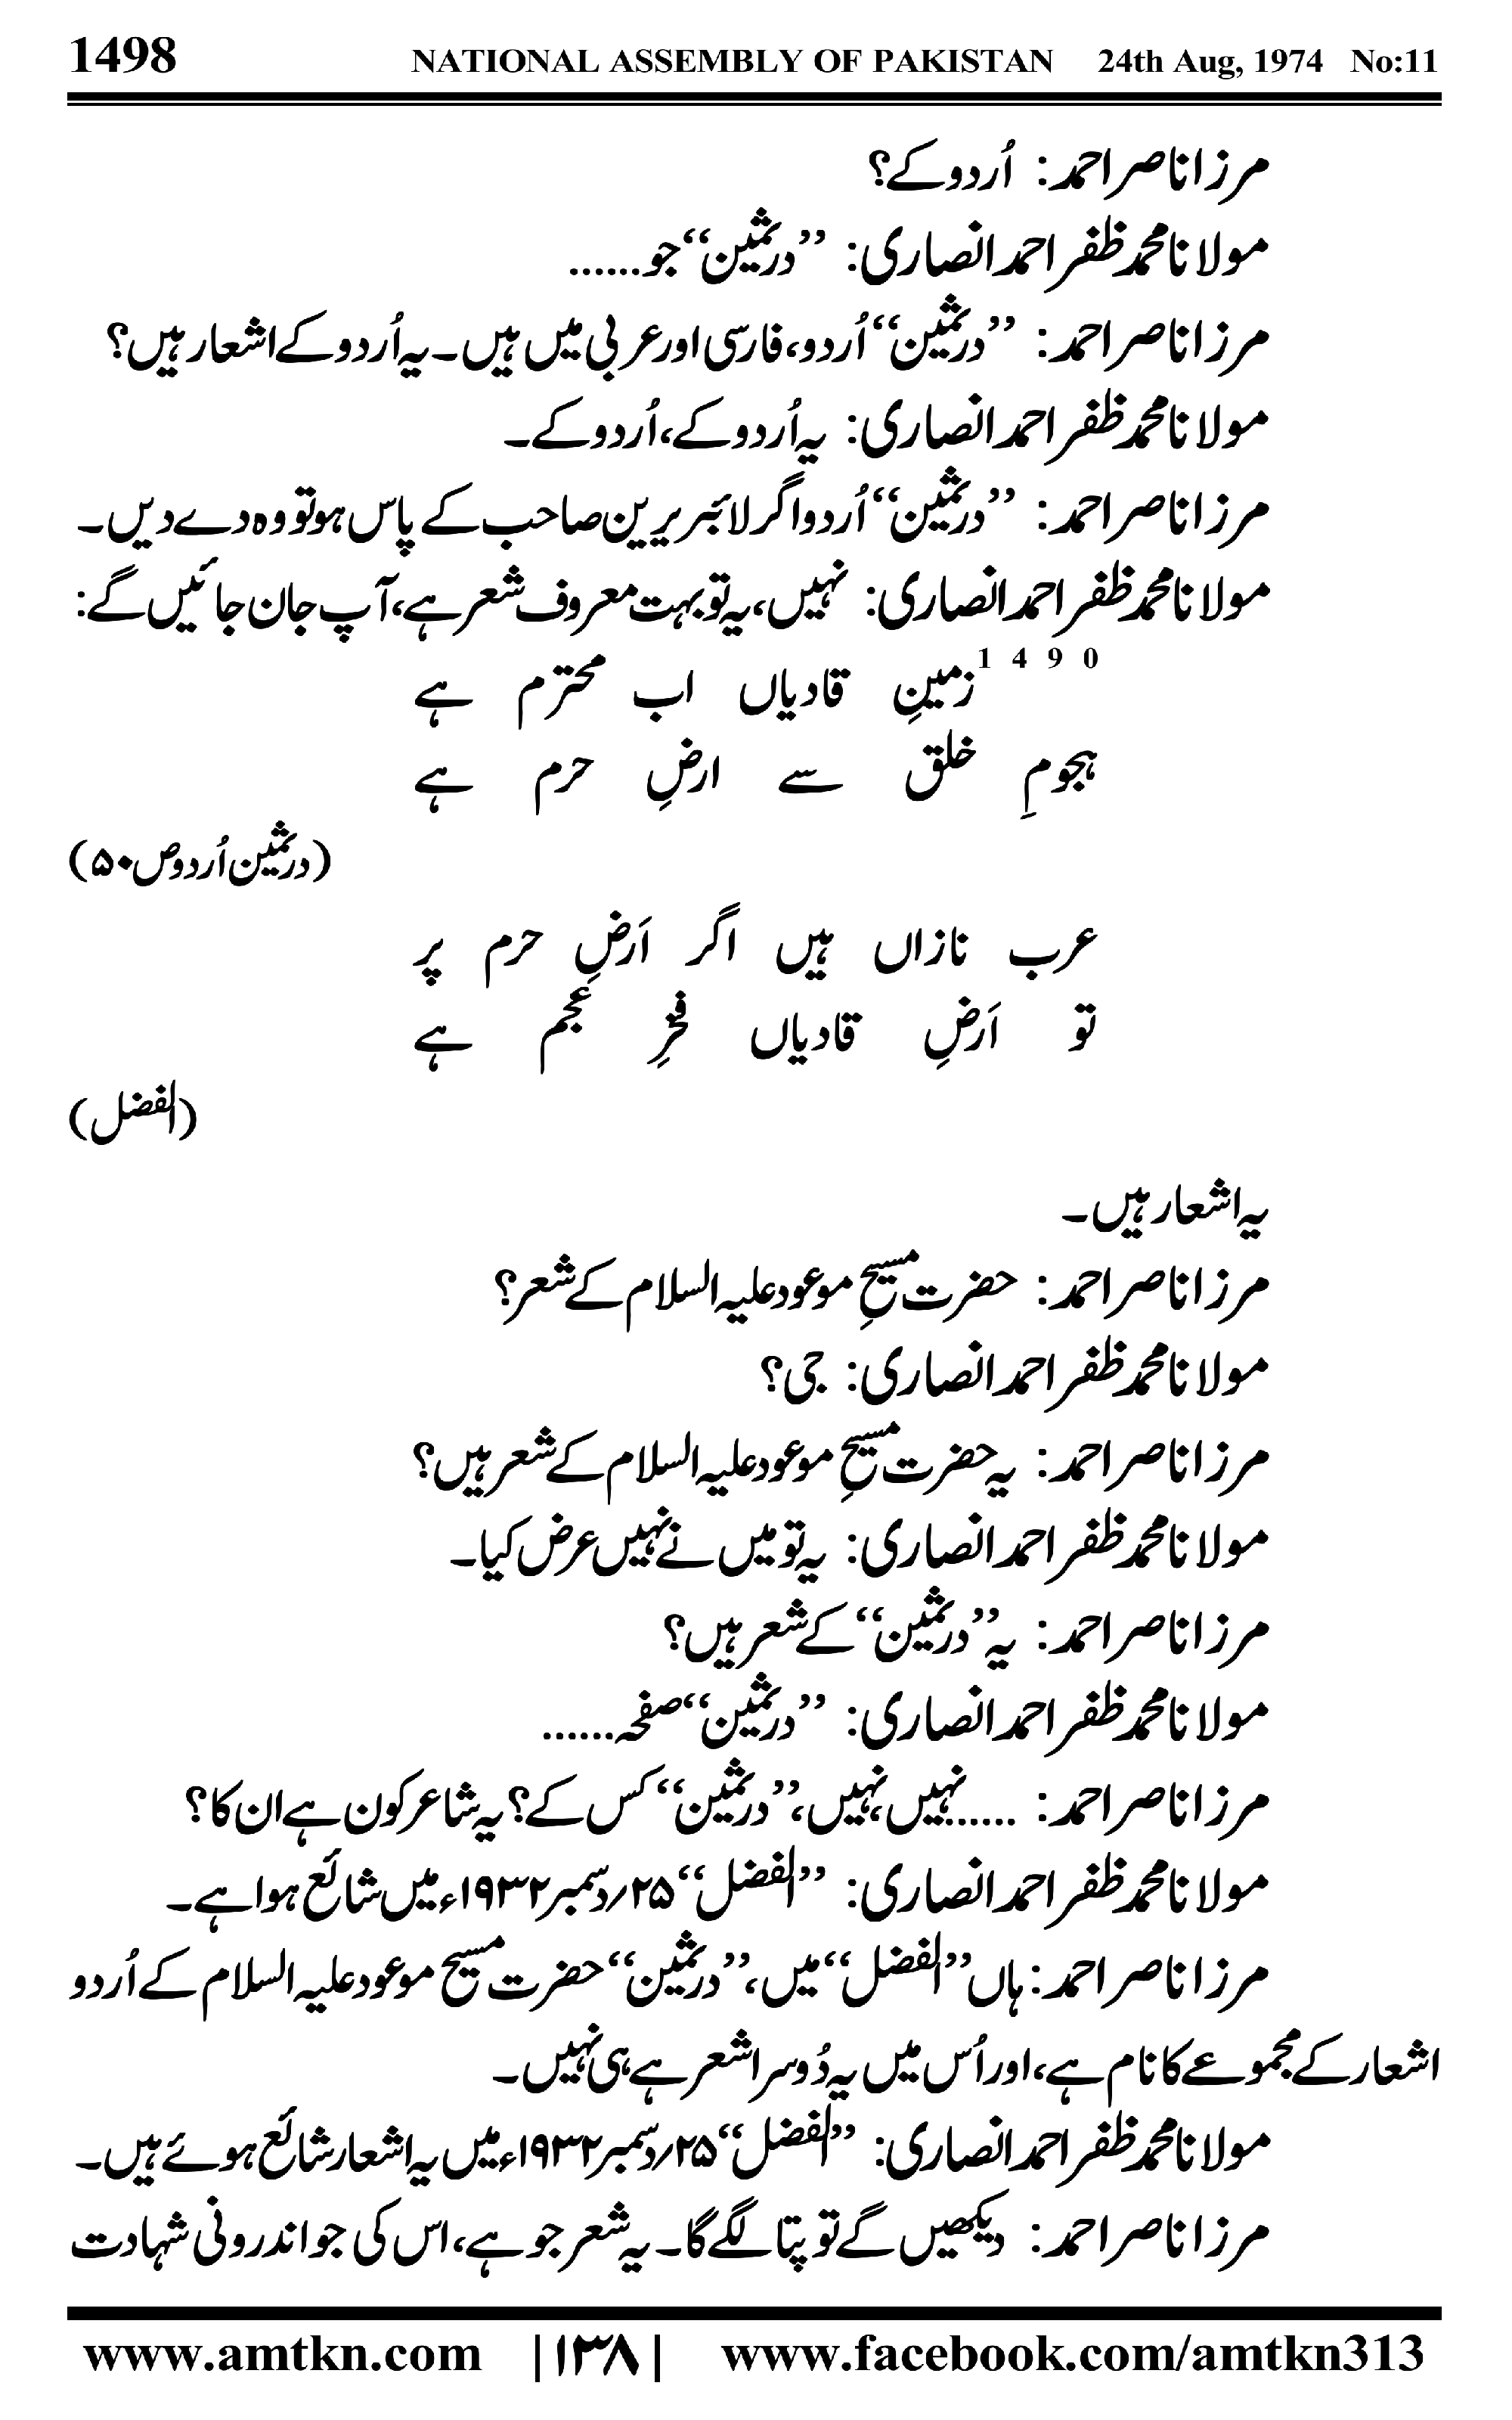 1498 NATIONAL ASSEMBLY OF PAKISTAN 24th Aug, 1974 No:11
مرزا ناصر احمد: اُردو کے؟
مولانا محمد ظفر احمد انصاری: ’’درثمین‘‘ جو......
مرزا ناصر احمد: ’’درثمین‘‘ اُردو، فارسی اور عربی میں ہیں۔ یہ اُردو کے اشعار ہیں؟
مولانا محمد ظفر احمد انصاری: یہ اُردو کے، اُردو کے۔
مرزا ناصر احمد: ’’درثمین‘‘ اُردو اگر لائبریرین صاحب کے پاس ہو تو وہ دے دیں۔
مولانا محمد ظفر احمد انصاری: نہیں، یہ تو بہت معروف شعر ہے، آپ جان جائیں گے:
1490 زمینِ قادیاں اب محترم ہے
ہجومِ خلق سے ارضِ حرم ہے
(درثمین اُردو ص۵۰)
عرب نازاں ہیں اگر اَرضِ حرم پر
تو اَرضِ قادیاں فخرِ عجم ہے
(الفضل)
یہ اشعار ہیں۔
مرزا ناصر احمد: حضرت مسیحِ موعود علیہ السلام کے شعر؟
مولانا محمد ظفر احمد انصاری: جی؟
مرزا ناصر احمد: یہ حضرت مسیحِ موعود علیہ السلام کے شعر ہیں؟
مولانا محمد ظفر احمد انصاری: یہ تو میں نے نہیں عرض کیا۔
مرزا ناصر احمد: یہ ’’درثمین‘‘ کے شعر ہیں؟
مولانا محمد ظفر احمد انصاری: ’’درثمین‘‘ صفحہ......
مرزا ناصر احمد: ......نہیں نہیں، ’’درثمین‘‘ کس کے؟ یہ شاعر کون ہے ان کا؟
مولانا محمد ظفر احمد انصاری: ’’الفضل‘‘ ۲۵؍دسمبر ۱۹۳۲ء میں شائع ہوا ہے۔
مرزا ناصر احمد: ہاں ’’الفضل‘‘ میں، ’’درثمین‘‘ حضرت مسیح موعود علیہ السلام کے اُردو
اشعار کے مجموعے کا نام ہے، اور اُس میں یہ دُوسرا شعر ہے ہی نہیں۔
مولانا محمد ظفر احمد انصاری: ’’الفضل‘‘ ۲۵؍دسمبر ۱۹۳۲ء میں یہ اشعار شائع ہوئے ہیں۔
مرزا ناصر احمد: دیکھیں گے تو پتا لگے گا۔ یہ شعر جو ہے، اس کی جو اندرونی شہادت
www.amtkn.com |۱۳۸| www.facebook.com/amtkn313